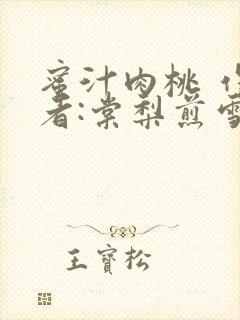 蜜汁肉桃
者:棠梨煎雪
王寶松